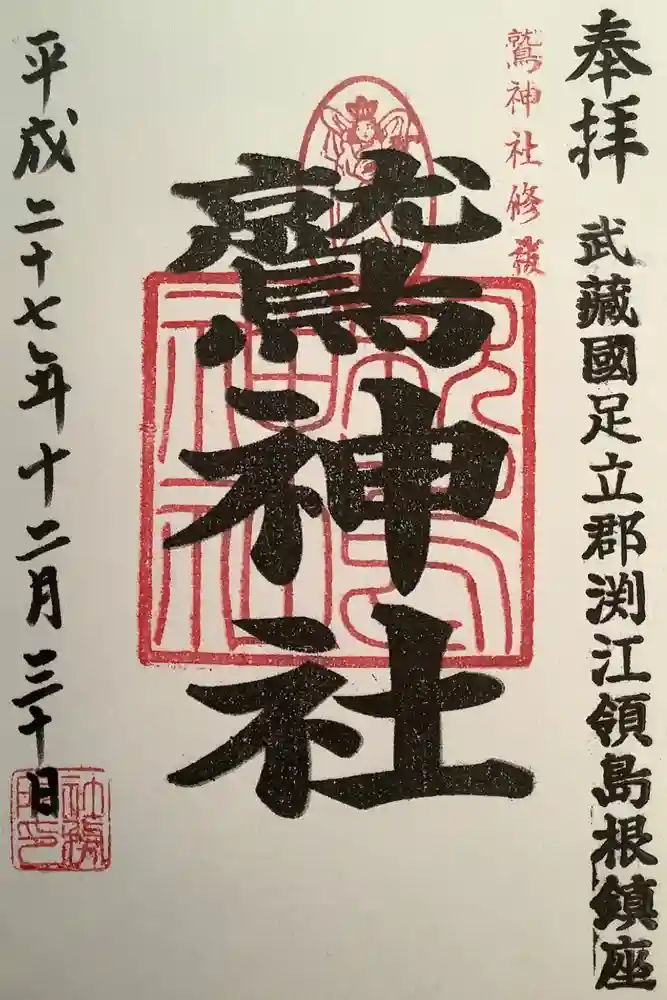 奉拝
武藏國足立郡渕江領島根鎮座
鷲神社修
鷲神社
平成二十七年十二月三十日